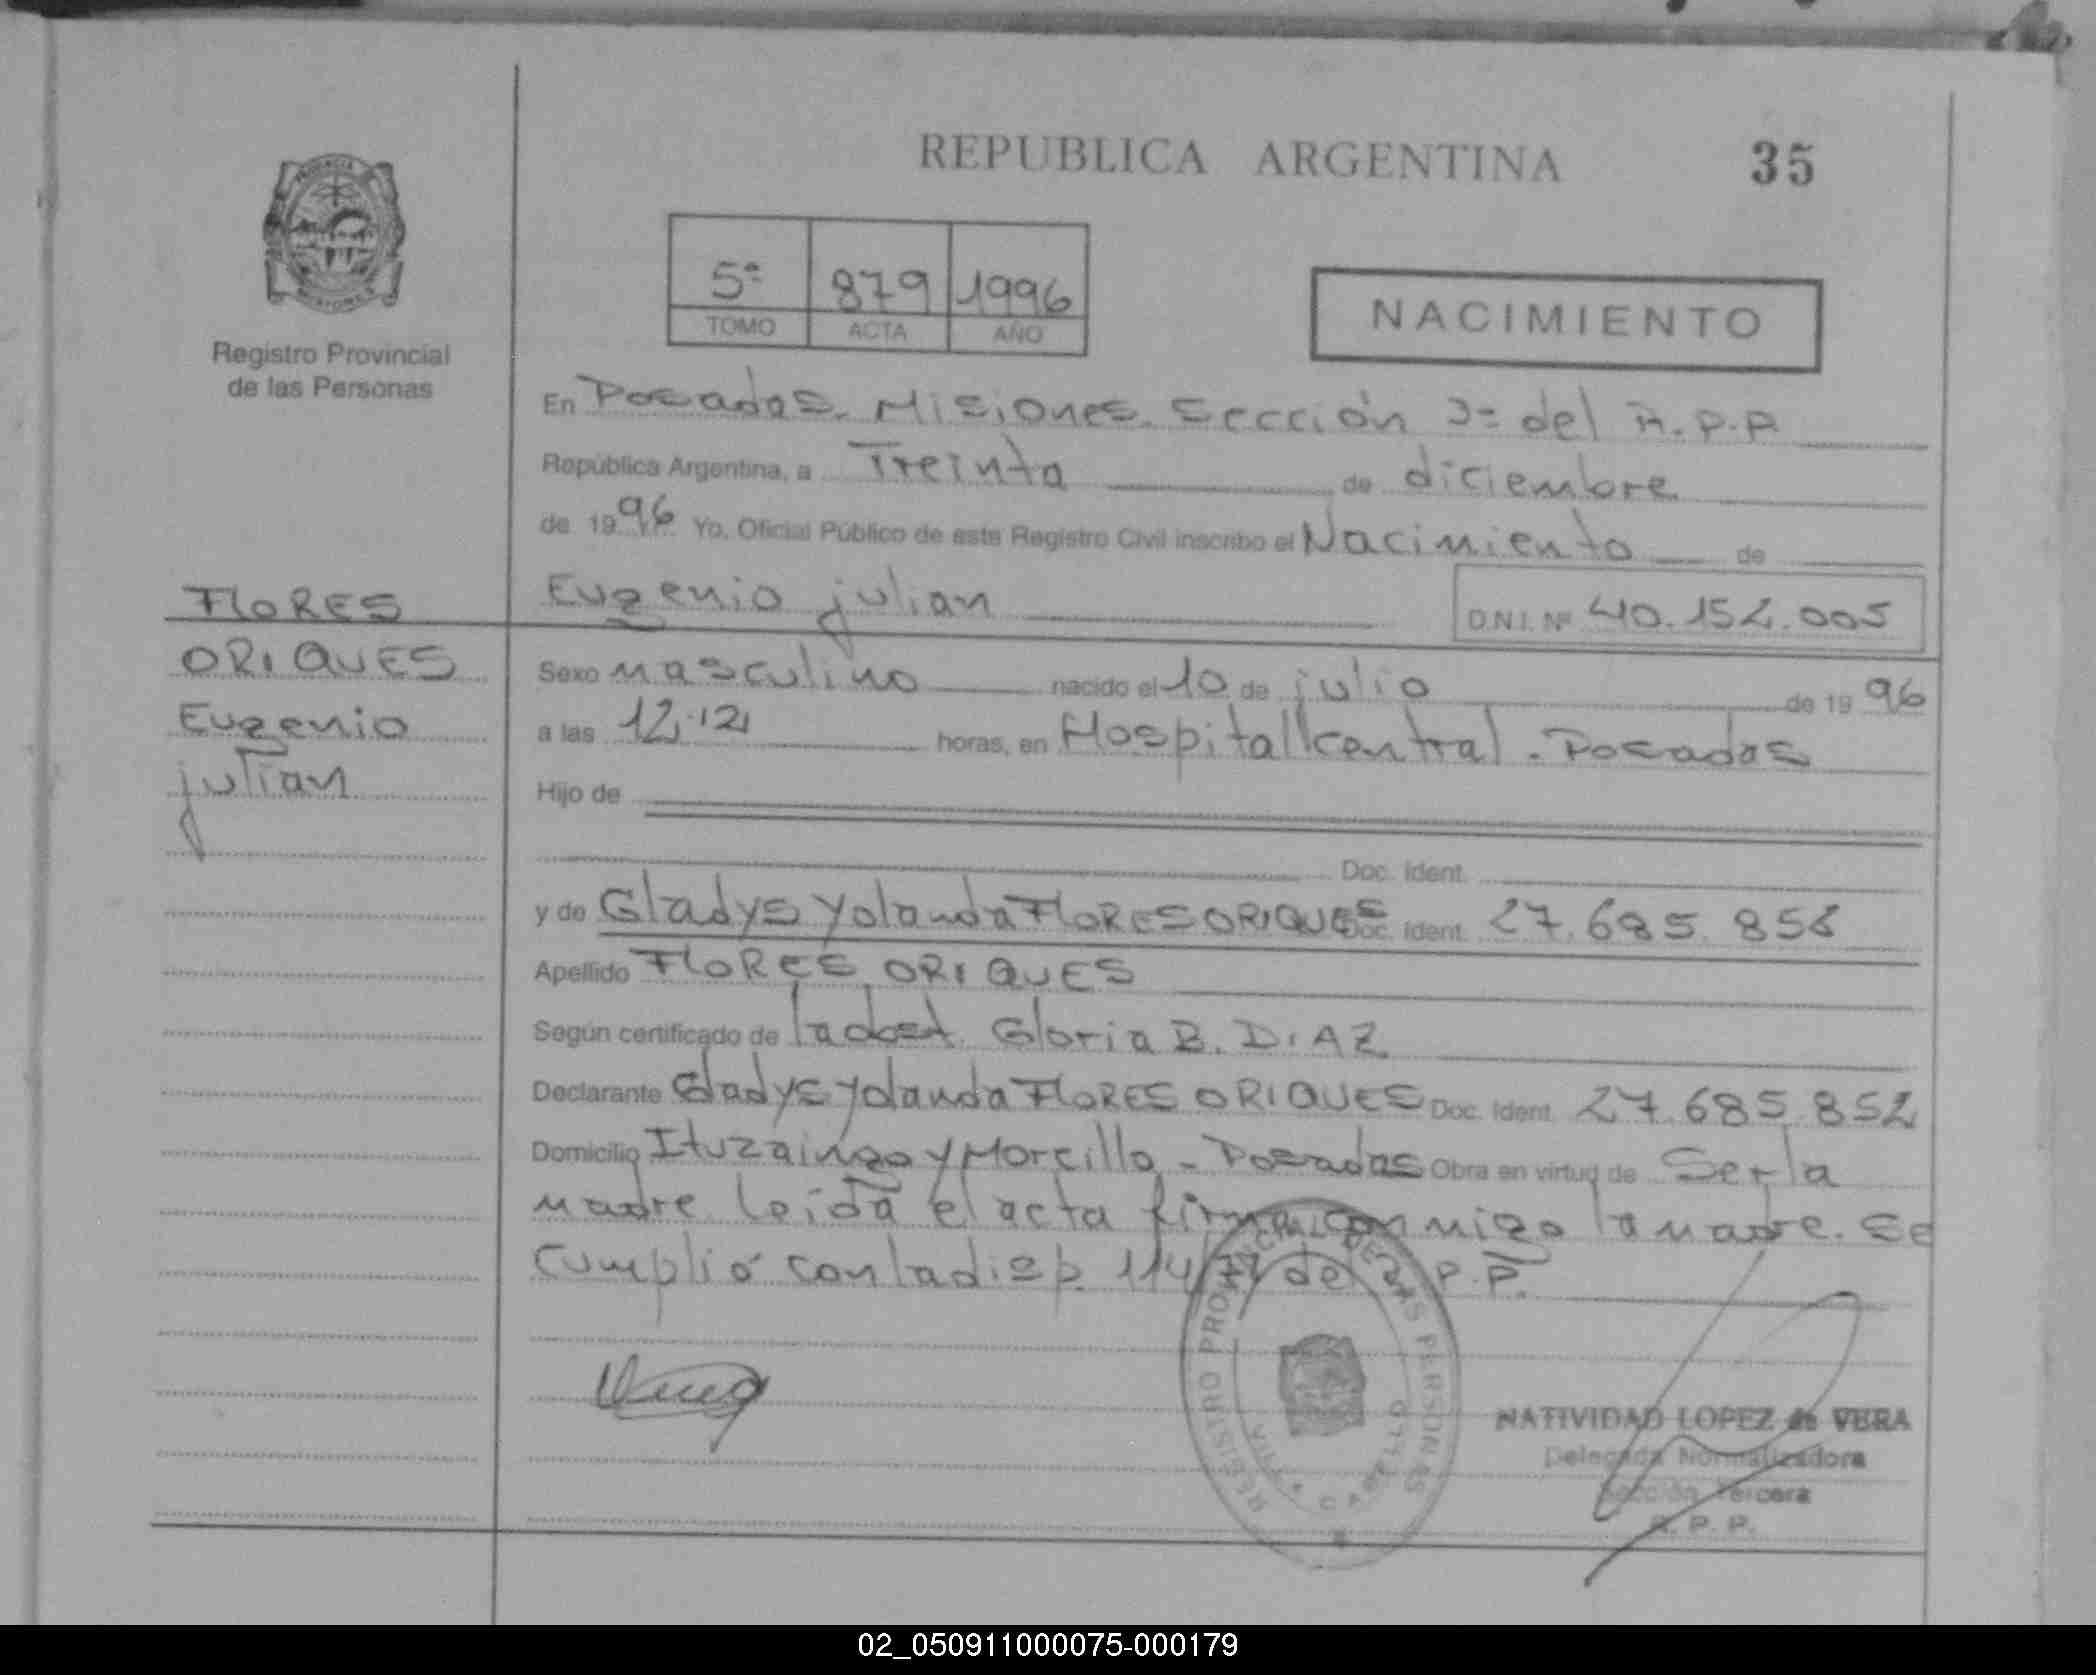 REPUBLICA ARGENTINA 35
PROVINCIA
MISIONES
Registro Provincial
de las Personas
5º 879 1996
TOMO ACTA AÑO
NACIMIENTO
En Posadas. Misiones. Sección 3º del R.P.P
República Argentina, a Treinta de diciembre
de 1996 Yo, Oficial Público de este Registro Civil inscribo el Nacimiento de
Eugenio julian D.N.I. Nº 40.152.005
FLORES
ORIQUES
Eugenio
julian
Sexo masculino nacido el 10 de julio de 1996
a las 12.12 horas, en Hospital central. Posadas
Hijo de
Doc. Ident.
y de Gladys Yolanda FLORES ORIQUES Doc. Ident. 27.685.852
Apellido FLORES ORIQUES
Según certificado de la obst. Gloria B. DIAZ
Declarante Gladys Yolanda FLORES ORIQUES Doc. Ident. 27.685.852
Domicilio Ituzaingo y Morcillo - Posadas Obra en virtud de Ser la
madre leida el acta firma conmigo la madre. Se
cumplió con la disp. 114 del R.P.P.
REGISTRO PROVINCIAL DE LAS PERSONAS
CABELLO
NATIVIDAD LOPEZ de VERA
Delegada Normalizadora
Sección Tercera
R. P. P.
02_050911000075-000179